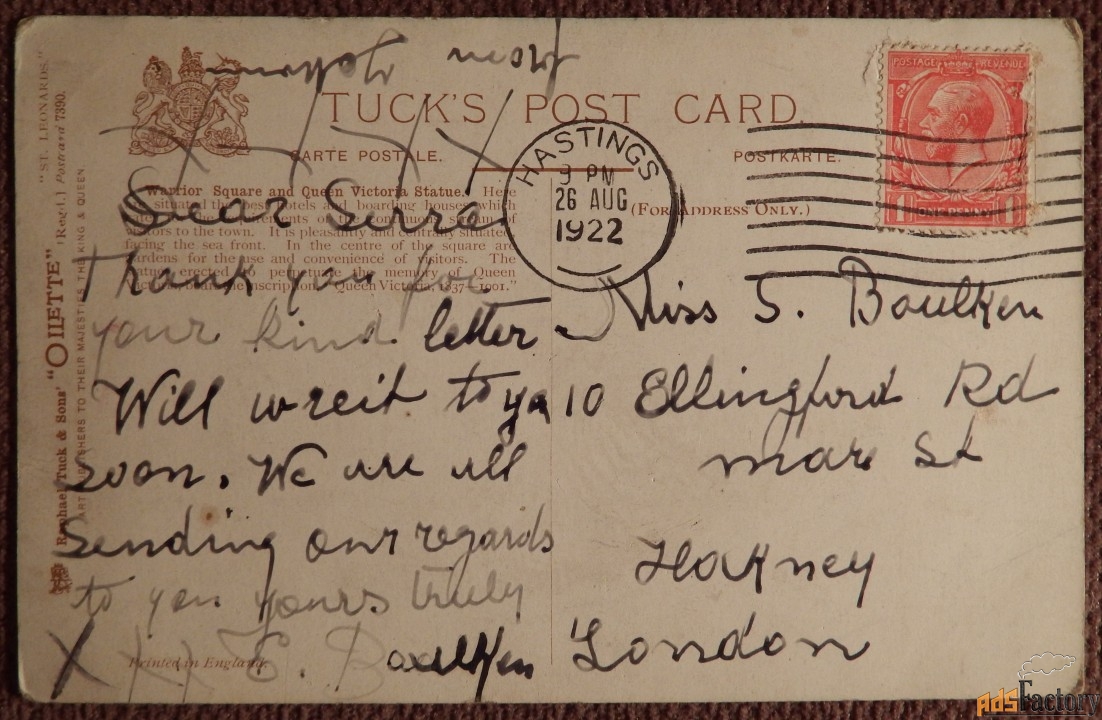 TUCK'S POST CARD.
CARTE POSTALE.
POSTKARTE.
(FOR ADDRESS ONLY.)
POSTAGE REVENUE
ONE PENNY
HASTINGS
3 PM
26 AUG
1922
"ST. LEONARDS."
(Regd.) Postcard 7390.
Raphael Tuck & Sons' "OILETTE"
ART PUBLISHERS TO THEIR MAJESTIES THE KING & QUEEN
Warrior Square and Queen Victoria Statue. Here
situated the best hotels and boarding houses which
of the continuous stream of
visitors to the town. It is pleasantly and centrally situated
facing the sea front. In the centre of the square are
gardens for the use and convenience of visitors. The
statue erected to perpetuate the memory of Queen
Victoria, bears the inscription "Queen Victoria, 1837-1901."
from
Dear
Thank you for
your kind letter
Will wreit to you
soon. We are all
Sending our regards
to you yours truly
X X X X E. Boulken
Printed in England.
Miss S. Boulken
10 Ellingford Rd
mare St
Hakney
London
ADSFactory